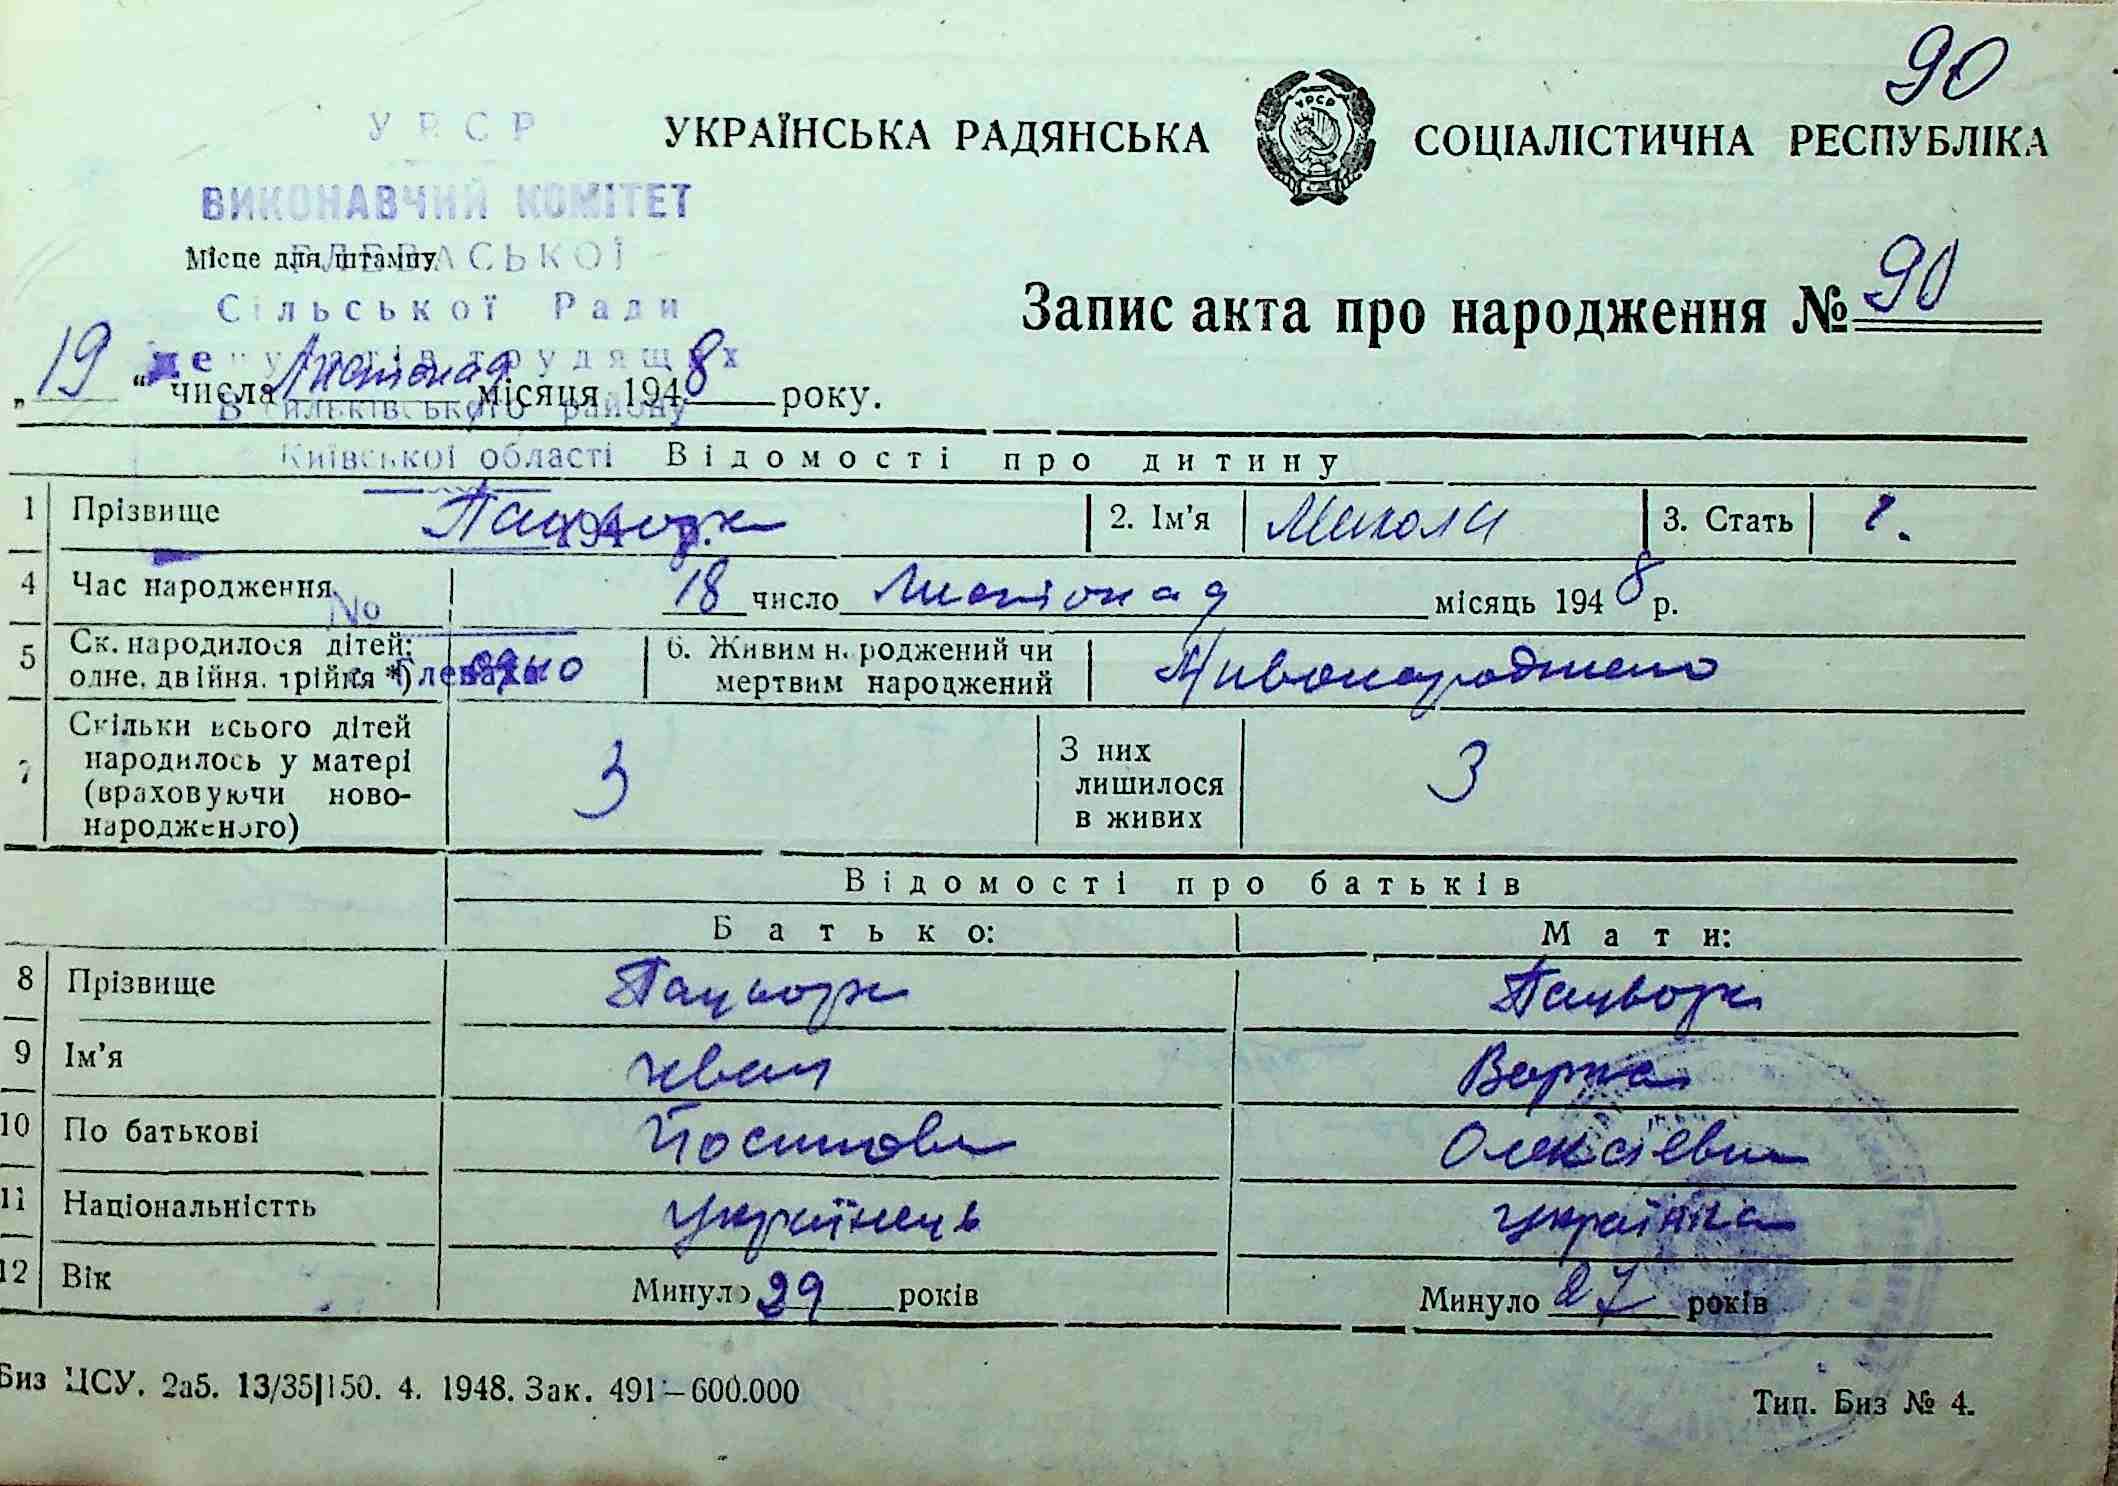 90
УРСР
УКРАЇНСЬКА РАДЯНСЬКА СОЦІАЛІСТИЧНА РЕСПУБЛІКА
УРСР
ВИКОНАВЧИЙ КОМІТЕТ
Місце для штампу
Сільської Ради
Запис акта про народження № 90
депутатів трудящих
„19“ числа Листопад місяця 1948 року.
Васильківського району
Київської області
Відомості про дитину
1 Прізвище Пацьора 2. Ім'я Микола 3. Стать ч.
194 р.
4 Час народження 18 число Листопад місяць 1948 р.
№
5 Ск. народилося дітей: одне, двійня, трійня *) одно 6. Живим народжений чи мертвим народжений Живонароджено
с. Глеваха
7 Скільки всього дітей народилось у матері (враховуючи новонародженого) 3 З них лишилося в живих 3
Відомості про батьків
Батько: Мати:
8 Прізвище Пацьора Пацьора
9 Ім'я Іван
10 По батькові Йосипов Олексіївн
11 Національністть українець українка
12 Вік Минуло 29 років Минуло 27 років
Биз ЦСУ. 2а5. 13/35|150. 4. 1948. Зак. 491—600.000 Тип. Биз № 4.